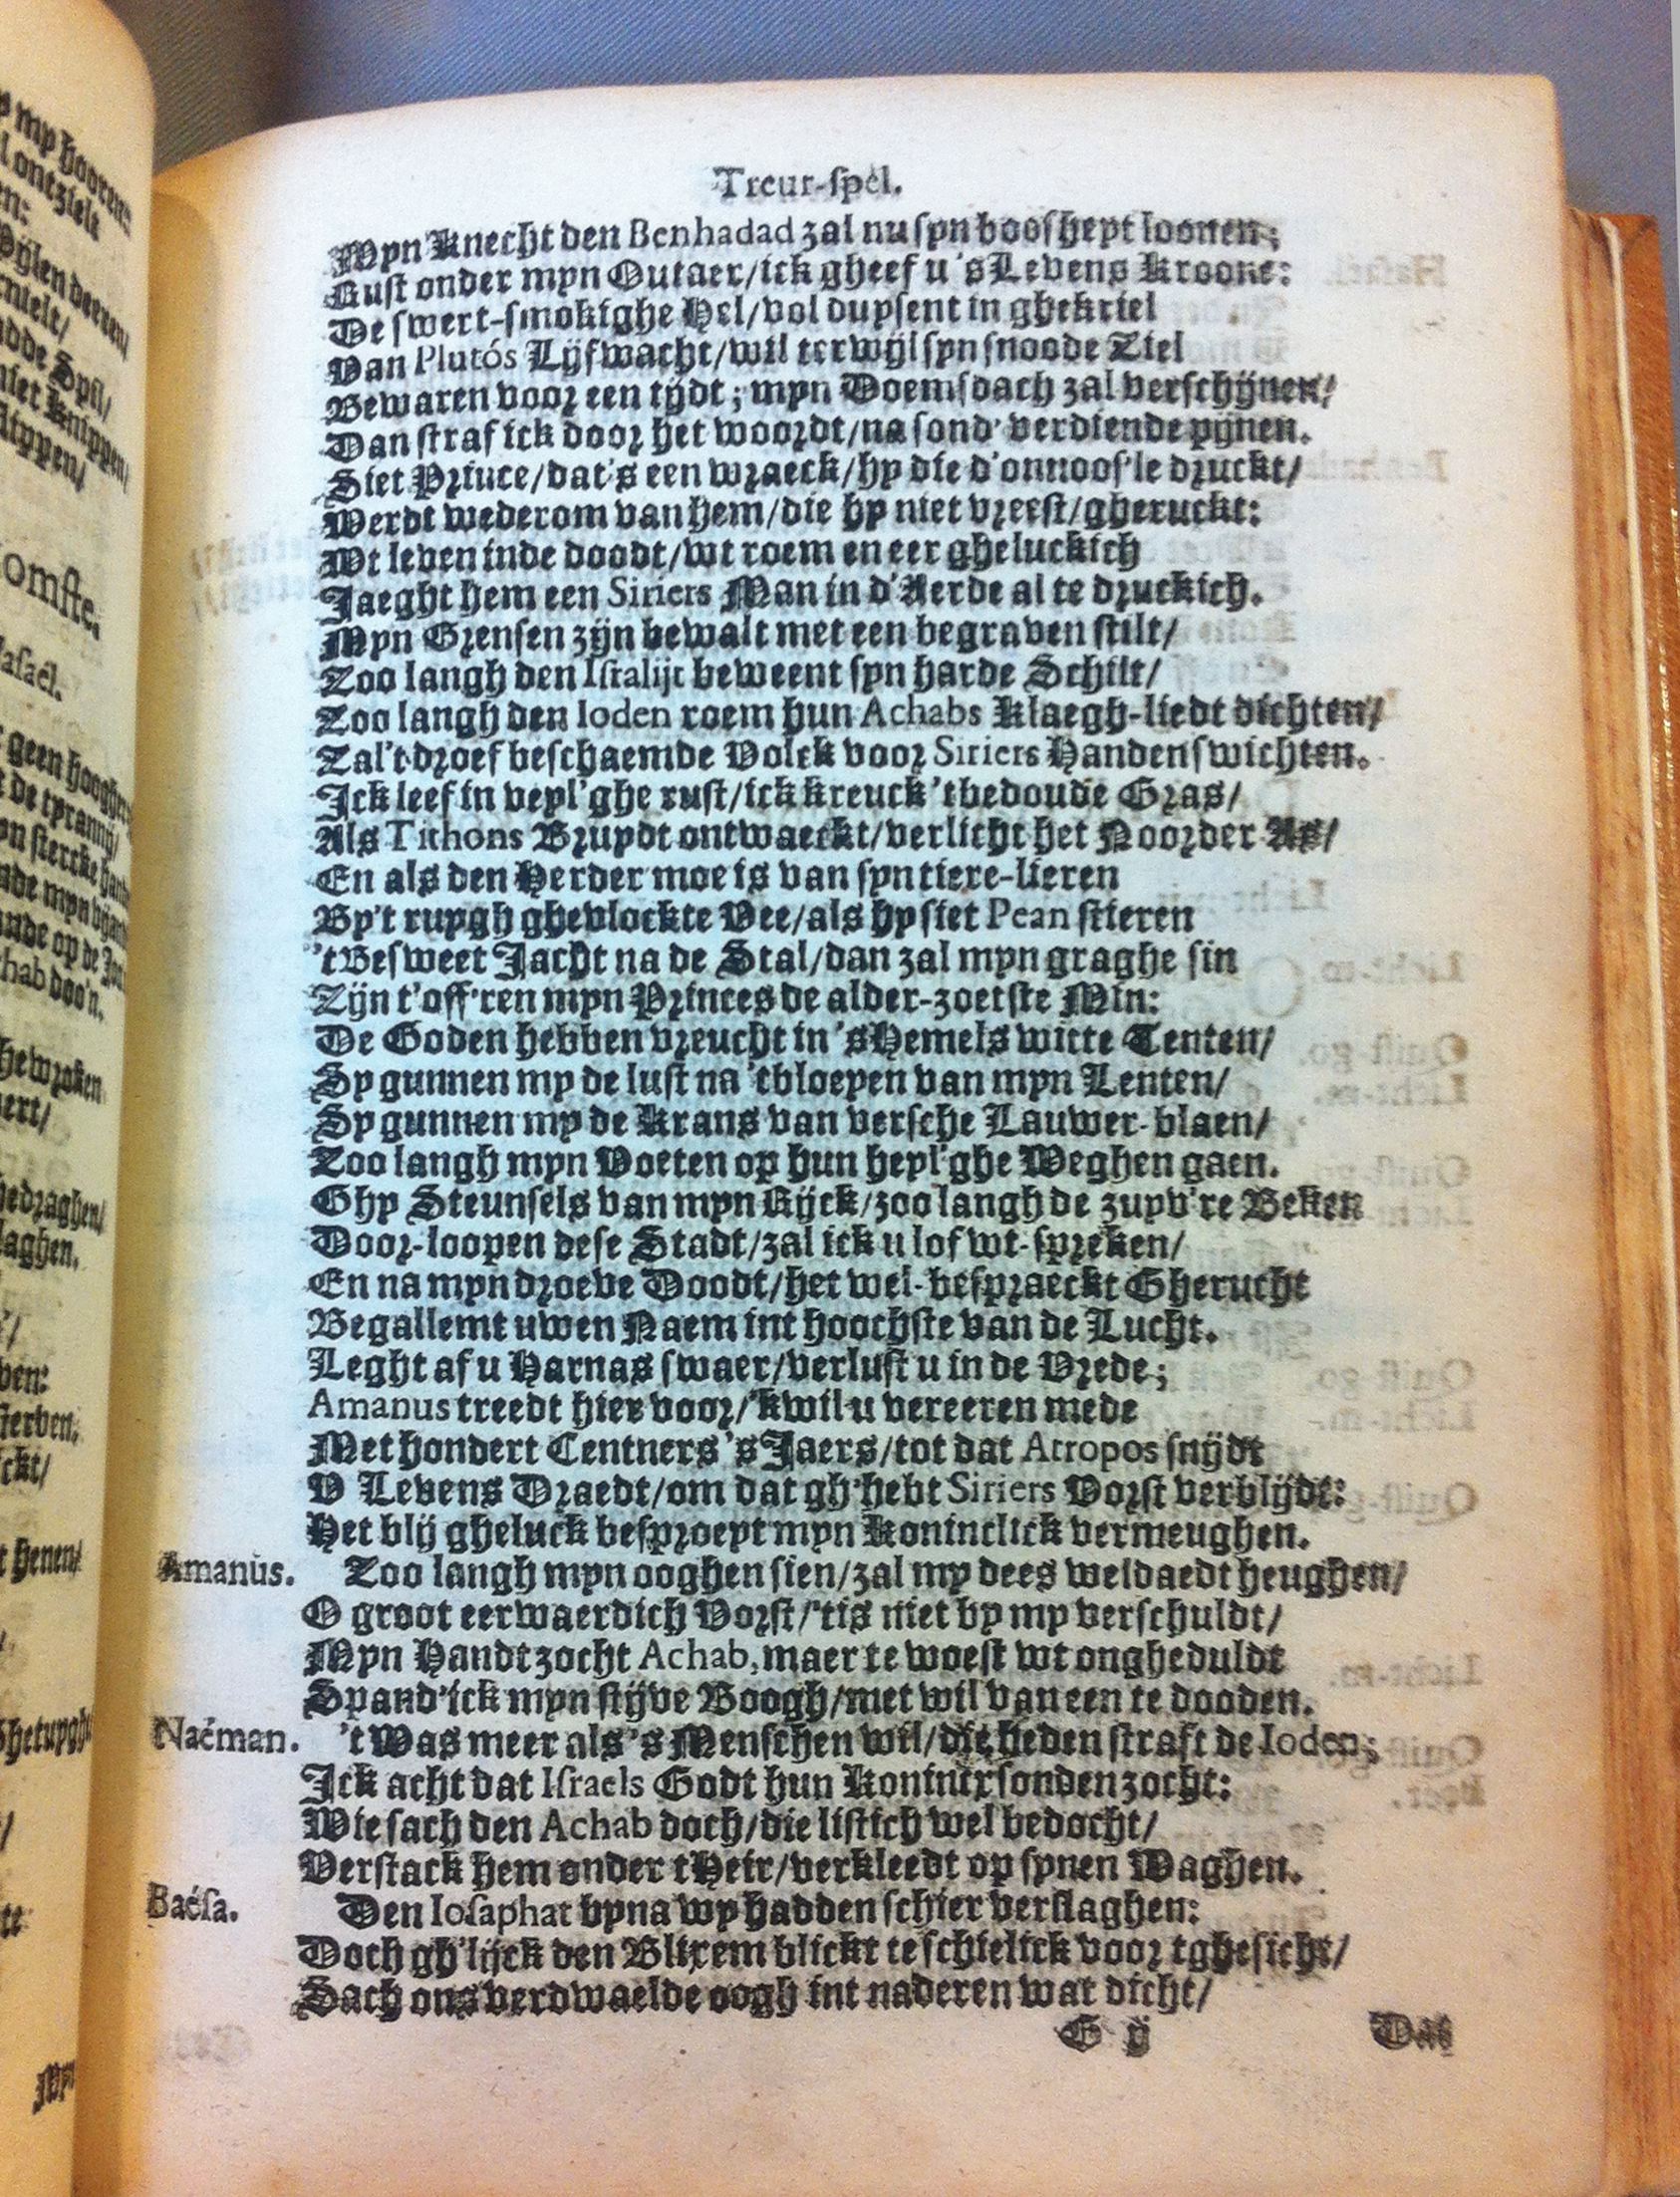 Treur-spel.
Myn Knecht den Benhadad zal nu syn boosheyt loonen;
Rust onder myn Outaer/ick gheef u 's Levens Kroone:
De swert-smokighe Hel/vol duysent in ghekriel
Van Plutós Lijfwacht/wil terwijl syn snoode Ziel
Bewaren voor een tijdt; myn Doemsdach zal verschijnen/
Dan straf ick door het woordt/na sond' verdiende pijnen.
Siet Prince/dat's een wraeck/hy die d'onnoos'le druckt/
Werdt wederom van hem/die hy niet vreest/gheruckt:
Wt leven inde doodt/wt roem en eer gheluckich
Jaeght hem een Siriers Man in d'Aerde al te druckich.
Myn Grensen zijn bewalt met een begraven stilt/
Zoo langh den Israliit beweent syn harde Schilt/
Zoo langh den Ioden roem hun Achabs Klaegh-liedt dichten/
Zal't droef beschaemde Volck voor Siriers Handen swichten.
Ick leef in veyl'ghe rust/ick kreuck 'tbedoude Gras/
Als Tithons Bruydt ontwaeckt/verlicht het Noorder As/
En als den Herder moe is van syn tiere-lieren
By't ruygh ghevlockte Vee/als hy siet Pean stieren
't Besweet Jacht na de Stal/dan zal myn graghe sin
Zijn t'off'ren myn Princes de alder-zoetste Min:
De Goden hebben vreucht in 's Hemels witte Tenten/
Sy gunnen my de lust na 'tbloeyen van myn Lenten/
Sy gunnen my de Krans van versche Lauwer-blaen/
Zoo langh myn Voeten op hun heyl'ghe Weghen gaen.
Ghy Steunsels van myn Rijck/zoo langh de zuyv're Beken
Door-loopen dese Stadt/zal ick u lof wt-spreken/
En na myn droeve Doodt/het wel-bespraeckt Gherucht
Begallemt uwen Naem int hoochste van de Lucht.
Leght af u Harnas swaer/verlust u in de Vrede;
Amanus treedt hier voor/'k wil u vereeren mede
Met hondert Centners 's Jaers/tot dat Atropos snijdt
V Levens Draedt/om dat gh'hebt Siriers Vorst verblijdt:
Het blij gheluck besproeyt myn Koninclick vermeughen.
Amanus. Zoo langh myn ooghen sien/zal my dees weldaedt heughen/
O groot eerwaerdich Vorst/'tis niet by my verschuldt/
Myn Handt zocht Achab, maer te woest wt ongheduldt
Spand' ick myn stijve Boogh/met wil van een te dooden.
Naëman. 't Was meer als 's Menschen wil/die heden straft de Ioden;
Ick acht dat Israels Godt hun Konincx sonden zocht:
Wie sach den Achab doch/die listich wel bedocht/
Verstack hem onder tHeir/verkleedt op synen Waghen.
Baësa. Den Iosaphat byna wy hadden schier verslaghen:
Doch gh'lijck den Blixem blickt te schielick voor tghesicht/
Sach ons verdwaelde oogh int naderen wat dicht/
G ij Dat